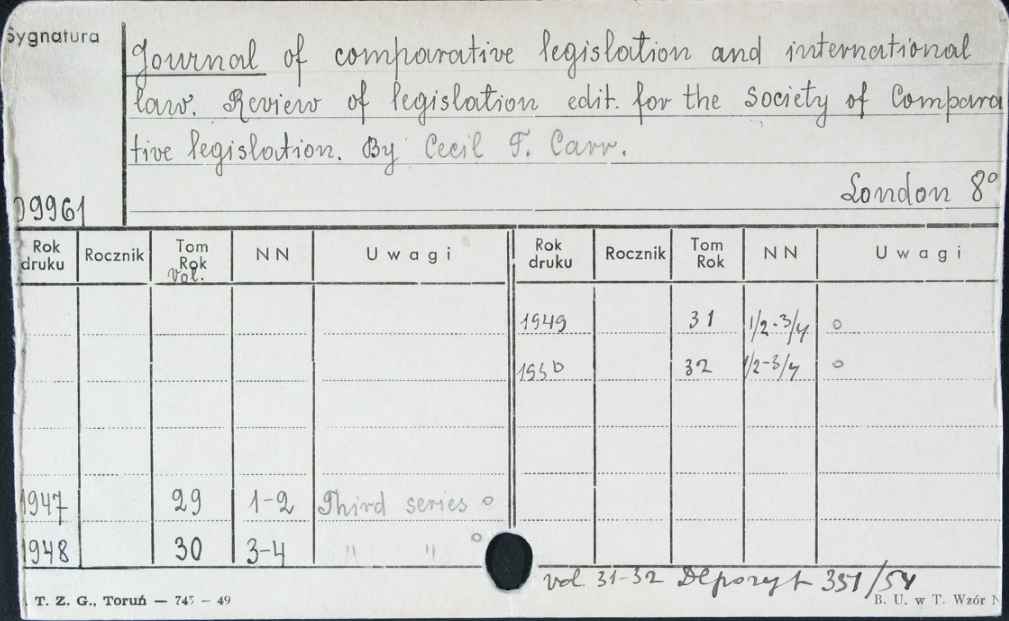 Sygnatura
Journal of comparative legislation and international
law. Review of legislation edit. for the Society of Compara
tive legislation. By Cecil T. Carr.
London 8°
09961
Rok druku Rocznik Tom Rok vol. NN Uwagi Rok druku Rocznik Tom Rok NN Uwagi
1949 31 1/2-3/4 o
1950 32 1/2-3/4 o
1947 29 1-2 Third series o
1948 30 3-4 " " o
vol. 31-32 Depozyt 351/54
T. Z. G., Toruń — 745 — 49 B. U. w T. Wzór